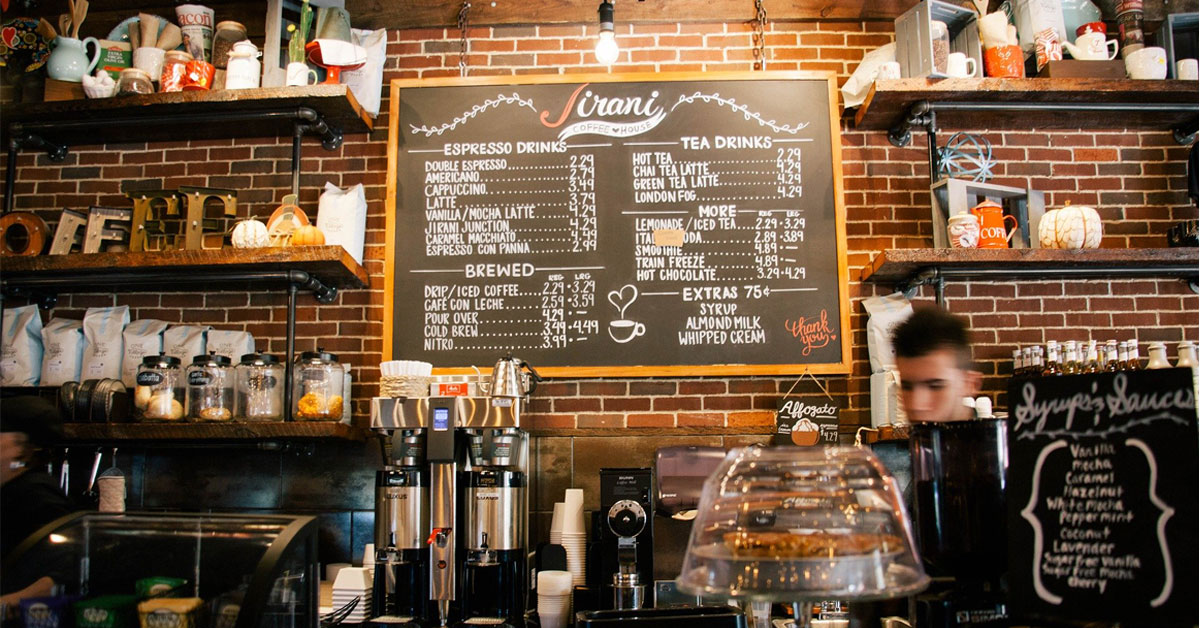 Jirani
COFFEE HOUSE
ESPRESSO DRINKS
DOUBLE ESPRESSO 2.29
AMERICANO 2.79
CAPPUCCINO 3.49
LATTE 3.79
VANILLA/MOCHA LATTE 4.29
JIRANI JUNCTION 4.29
CARAMEL MACCHIATO 4.49
ESPRESSO CON PANNA 2.99
BREWED REG LRG
DRIP/ICED COFFEE 2.29 • 3.29
CAFÉ CON LECHE 2.59 • 3.59
POUR OVER 4.29 • —
COLD BREW 3.49 • 4.49
NITRO 3.99 • —
TEA DRINKS
HOT TEA 2.29
CHAI TEA LATTE 4.29
GREEN TEA LATTE 4.29
LONDON FOG 4.29
MORE REG LRG
LEMONADE/ICED TEA 2.29 • 3.29
2.89 • 3.89
SMOOTHIE 4.89 • —
TRAIN FREEZE 4.89 • —
HOT CHOCOLATE 3.29 • 4.29
EXTRAS 75¢
SYRUP
ALMOND MILK
WHIPPED CREAM
thank you
Affogato
$4.29
Syrups & Sauces
Vanilla
mocha
Caramel
Hazelnut
White mocha
Peppermint
Coconut
Lavender
Sugar Free Vanilla
Sugar Free Mocha
Cherry